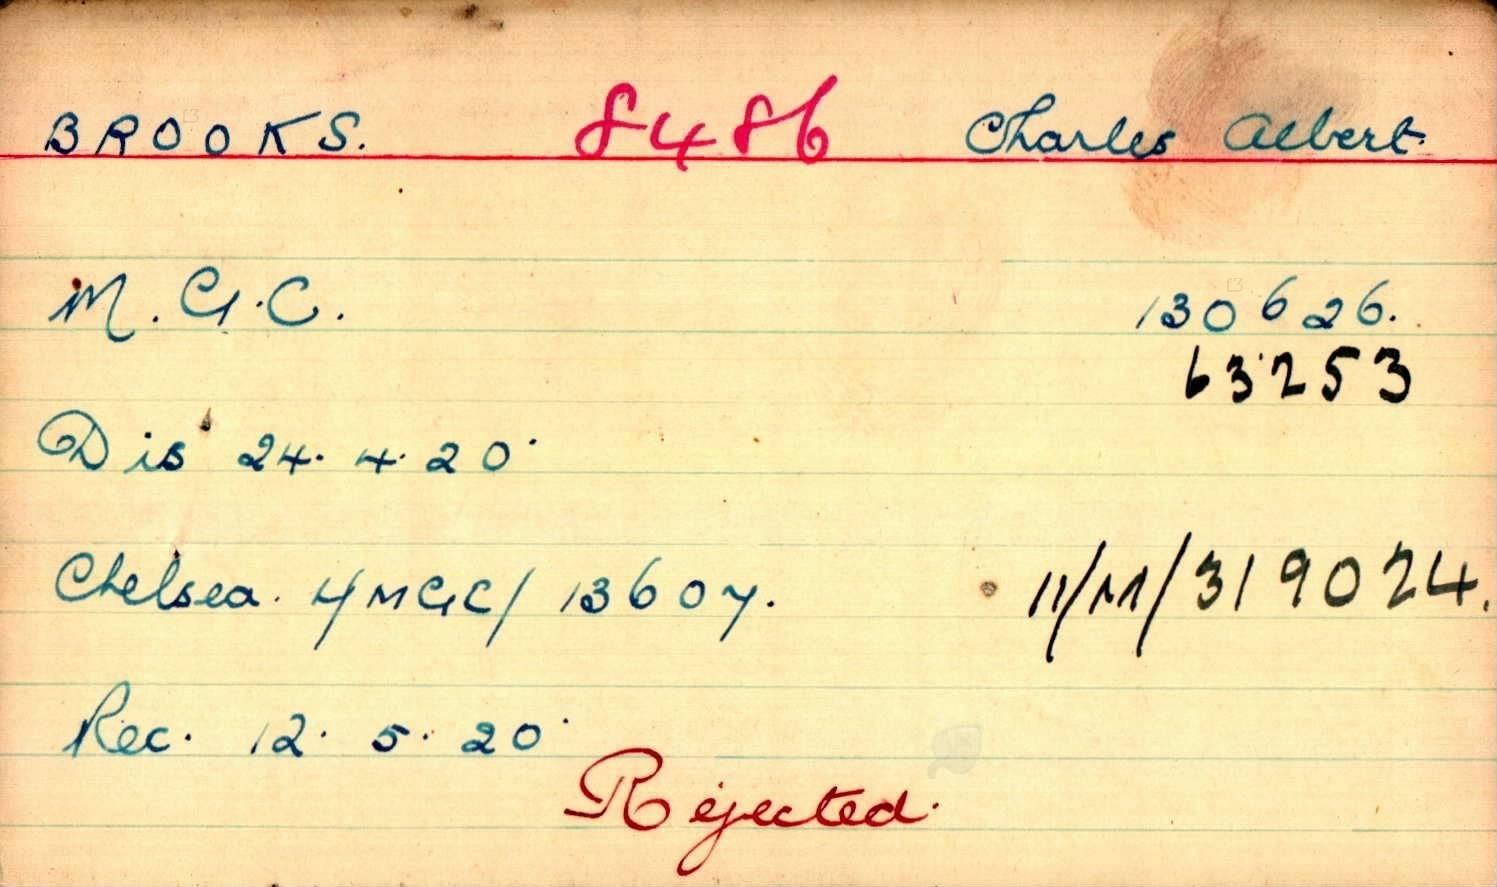 BROOKS. 8486 Charles Albert.
M.G.C. 130626.
63253
Dis 24.4.20
Chelsea. 4/MGC/13607. 11/M/319024.
Rec. 12.5.20
Rejected.